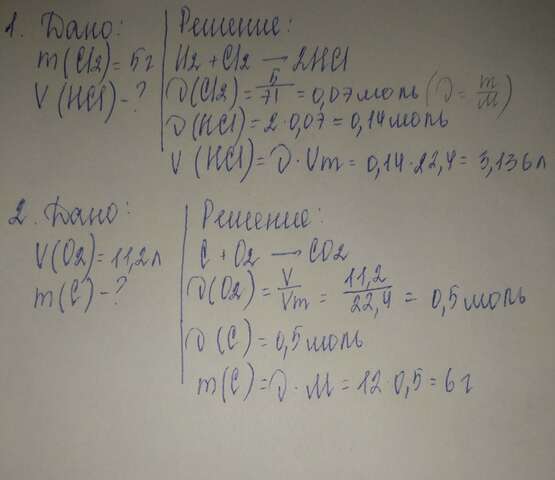 1. Дано:
m(Cl2)=5г
V(HCl)-?
Решение:
H2+Cl2→2HCl
ν(Cl2)=5/71=0,07моль(ν=m/M)
ν(HCl)=2·0,07=0,14моль
V(HCl)=ν·Vm=0,14·22,4=3,136л
2. Дано:
V(O2)=11,2л
m(C)-?
Решение:
C+O2→CO2
ν(O2)=V/Vm=11,2/22,4=0,5моль
ν(C)=0,5моль
m(C)=ν·M=12·0,5=6г